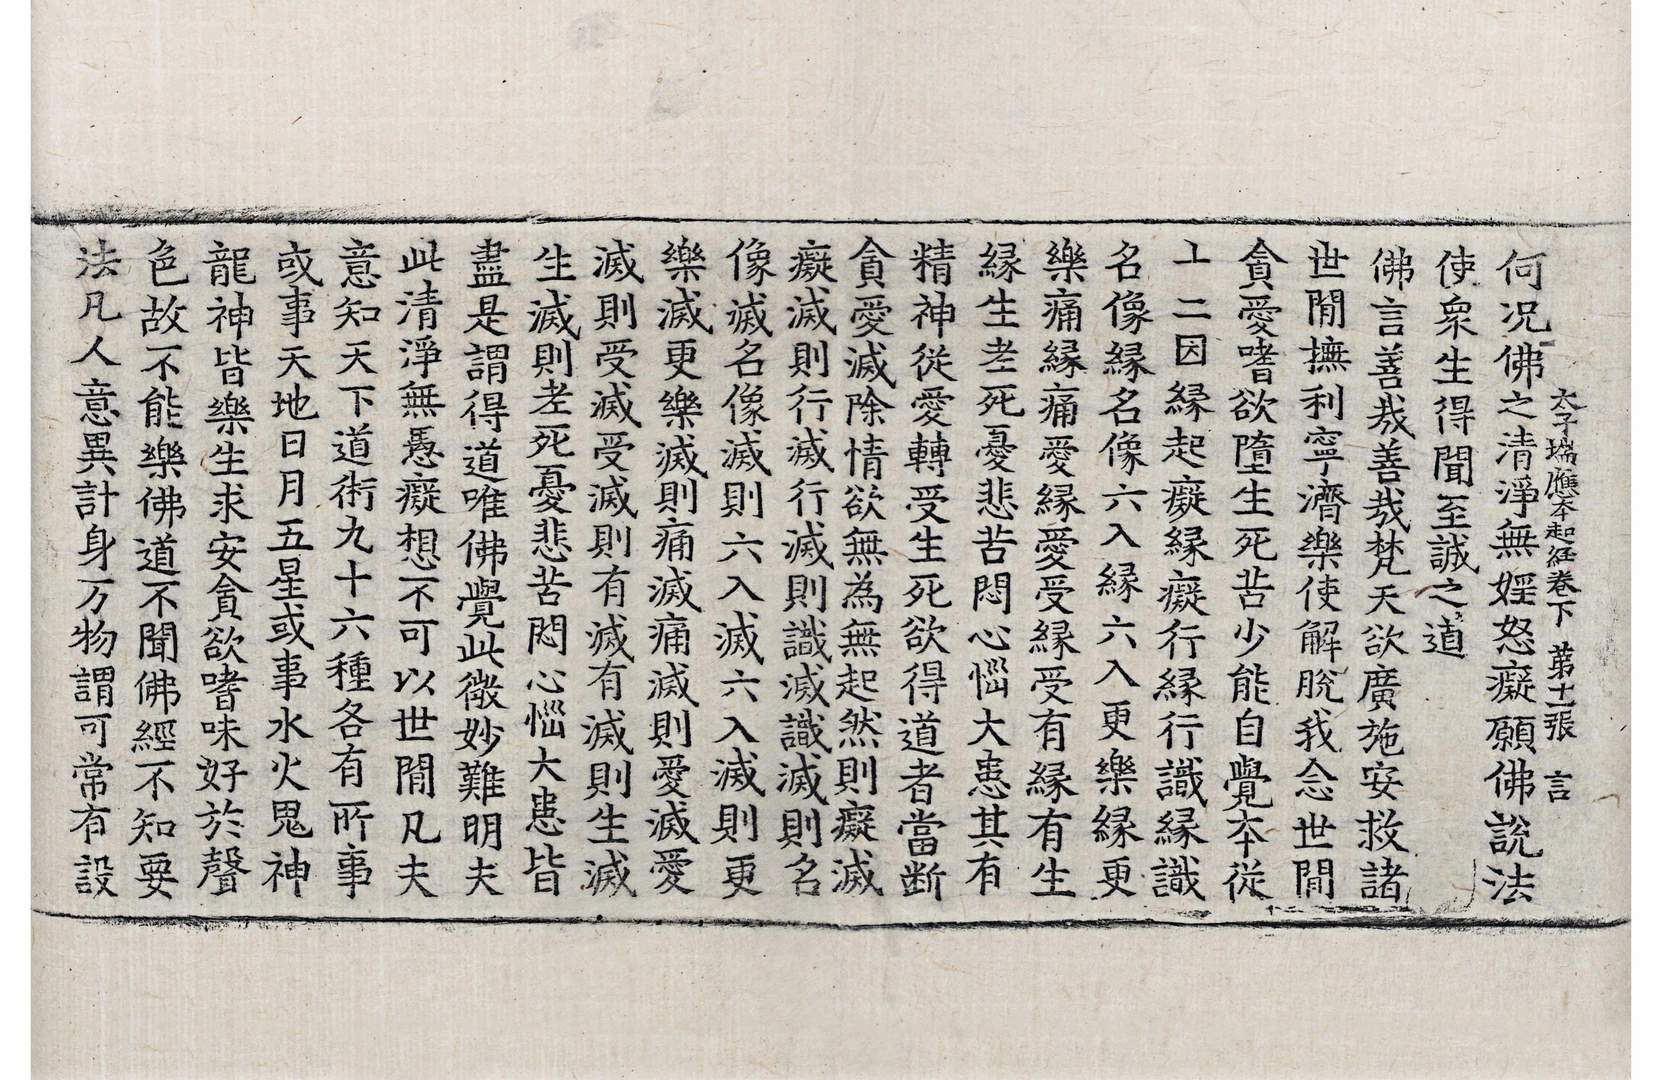 太子瑞應本起經卷下 第十二張 言
何況佛之清淨無婬怒癡願佛說法
使衆生得聞至誠之道
佛言善㢤善㢤梵天欲廣施安救諸
世閒撫利寧濟樂使解脫我念世閒
貪愛嗜欲墮生死苦少能自覺本從
十二因緣起癡緣癡行緣行識緣識
名像緣名像六入緣六入更樂緣更
樂痛緣痛愛緣愛受緣受有緣有生
緣生老死憂悲苦悶心惱大患其有
精神從愛轉受生死欲得道者當斷
貪愛滅除情欲無為無起然則癡滅
癡滅則行滅行滅則識滅識滅則名
像滅名像滅則六入滅六入滅則更
樂滅更樂滅則痛滅痛滅則愛滅愛
滅則受滅受滅則有滅有滅則生滅
生滅則老死憂悲苦悶心惱大患皆
盡是謂得道唯佛覺此微妙難明夫
此清淨無愚癡想不可以世閒凡夫
意知天下道術九十六種各有所事
或事天地日月五星或事水火鬼神
龍神皆樂生求安貪欲嗜味好於聲
色故不能樂佛道不聞佛經不知要
法凡人意異計身万物謂可常有設